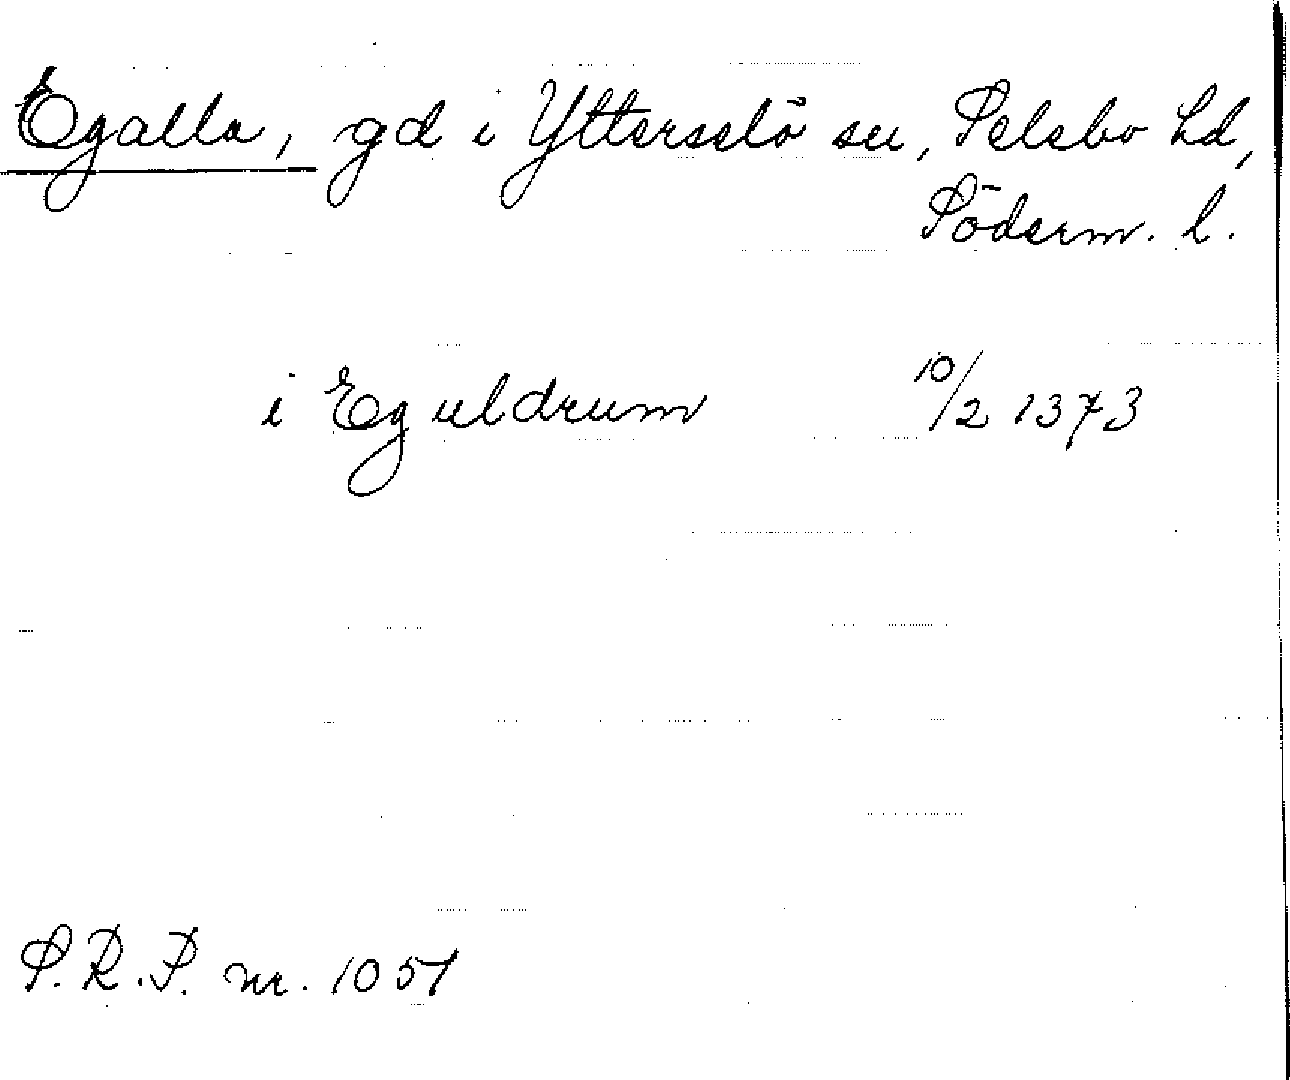 Egalla, gd i Ytterselö sn, Selebo hd,
Söderm. l.
i Eguldrum 10/2 1373
S.R.P. nr. 1051